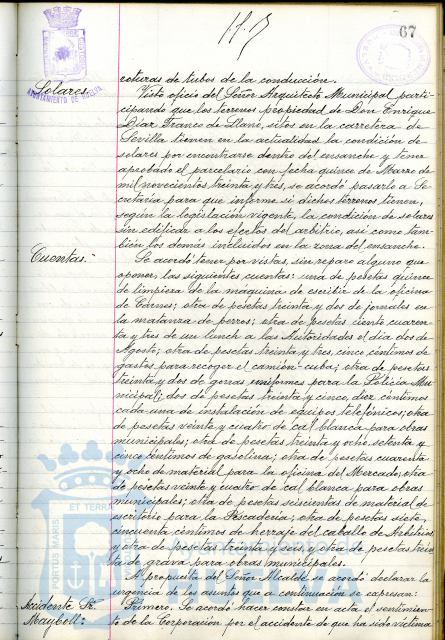 67
Solares.
AYUNTAMIENTO DE HUELVA
roturas de tubos de la conducción.
Visto oficio del Señor Arquitecto Municipal parti-
cipando que los terrenos propiedad de Don Enrique
Díaz Franco de Llano, sitos en la carretera de
Sevilla tienen en la actualidad la condición de
solares por encontrarse dentro del ensanche y tener
aprobado el parcelario con fecha quince de Marzo de
mil novecientos treinta y tres, se acordó pasarlo a Se-
cretaría para que informe si dichos terrenos tienen,
según la legislación vigente, la condición de solares
sin edificar a los efectos del arbitrio, así como tam-
bién los demás incluidos en la zona del ensanche.
Cuentas.-
Se acordó tener por vistas, sin reparo alguno que
oponer las siguientes cuentas: una de pesetas quince
de limpieza de la máquina de escribir de la oficina
de Carnes; otra de pesetas treinta y dos de jornales en
la matanza de perros; otra de pesetas ciento cuaren-
ta y tres de un lunch a las Autoridades el día dos de
Agosto; otra de pesetas treinta y tres, cinco céntimos de
gastos para recoger el camión-cuba; otra de pesetas
treinta y dos de uniformes para la Policía Mu-
nicipal; dos de pesetas treinta y cinco, diez céntimos
cada una de instalación de equipos telefónicos; otra
de pesetas veinte y cuatro de cal blanca para obras
municipales; otra de pesetas treinta y ocho, setenta y
cinco céntimos de gasolina; otra de pesetas cuarenta
y ocho de material para la oficina del Mercado; otra
de pesetas veinte y cuatro de cal blanca para obras
municipales; otra de pesetas seiscientas de material de
escritorio para la Pescadería; otra de pesetas siete,
cincuenta céntimos de herraje del caballo de Arbitrios
y otra de pesetas treinta y seis y otra de pesetas trein-
ta de grava para obras municipales.
A propuesta del Señor Alcalde se acordó declarar la
urgencia de los asuntos que a continuación se expresan:
Accidente Sr.
Mayboll:
Primero. Se acordó hacer constar en acta el sentimien-
to de la Corporación por el accidente de que ha sido víctima
PORTUS MARIS ET TERRA